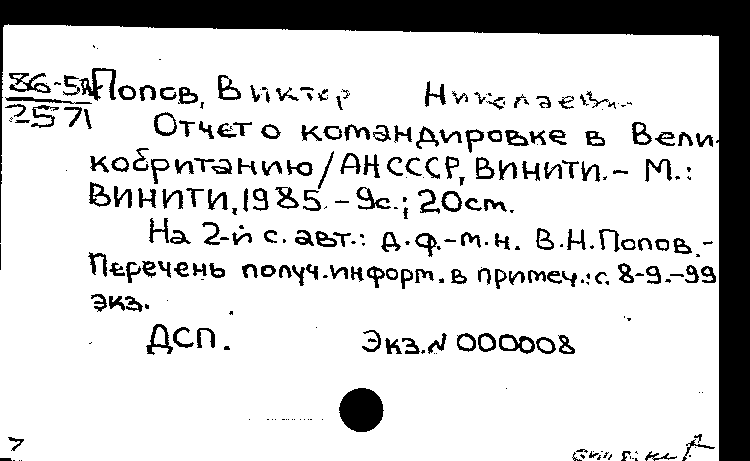 86-5А Попов, Виктор Николаевич
2571
Отчет о командировке в Вели-
кобританию/АН СССР, ВИНИТИ.- М.:
ВИНИТИ, 1985.-9с.; 20см.
На 2-й с. авт.: д.ф.-м.н. В.Н.Попов.-
Перечень получ.информ.в примеч.:с. 8-9.-99
экз.
ДСП. Экз.№ 000008
7